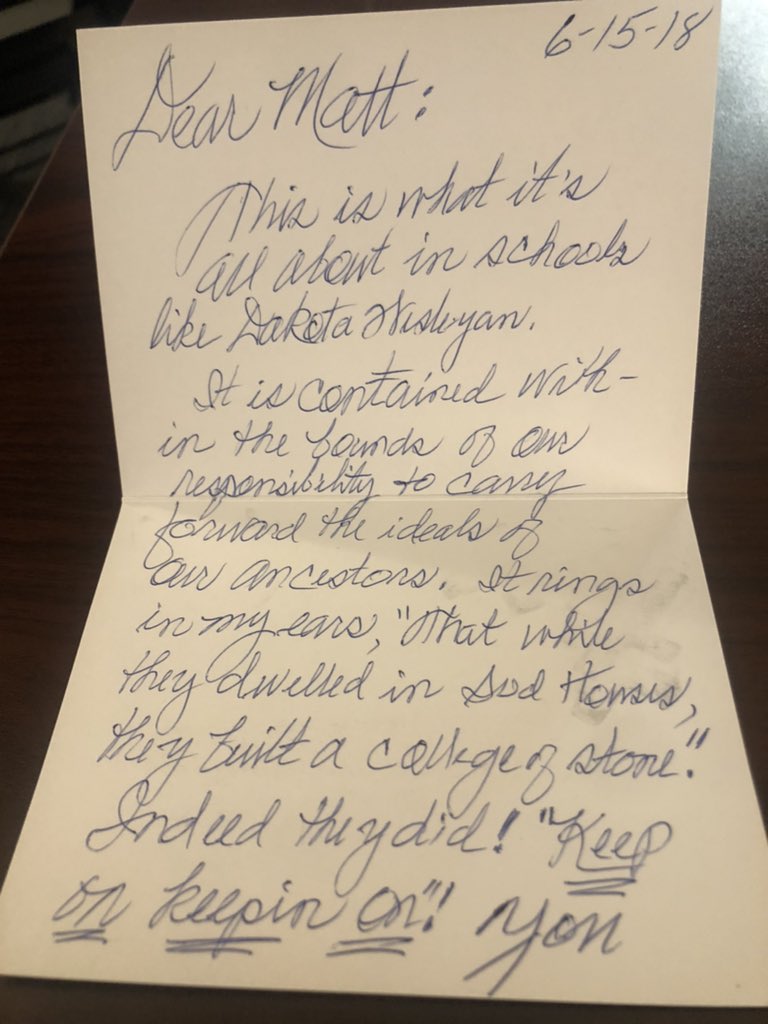 6-15-18
Dear Matt:
This is what it's
all about in schools
like Dakota Wesleyan.
It is contained with-
in the bounds of our
responsibility to carry
forward the ideals of
our ancestors. It rings
in my ears, "That while
they dwelled in Sod Houses,
they built a college of stone."
Indeed they did! "Keep
on keepin on"! You